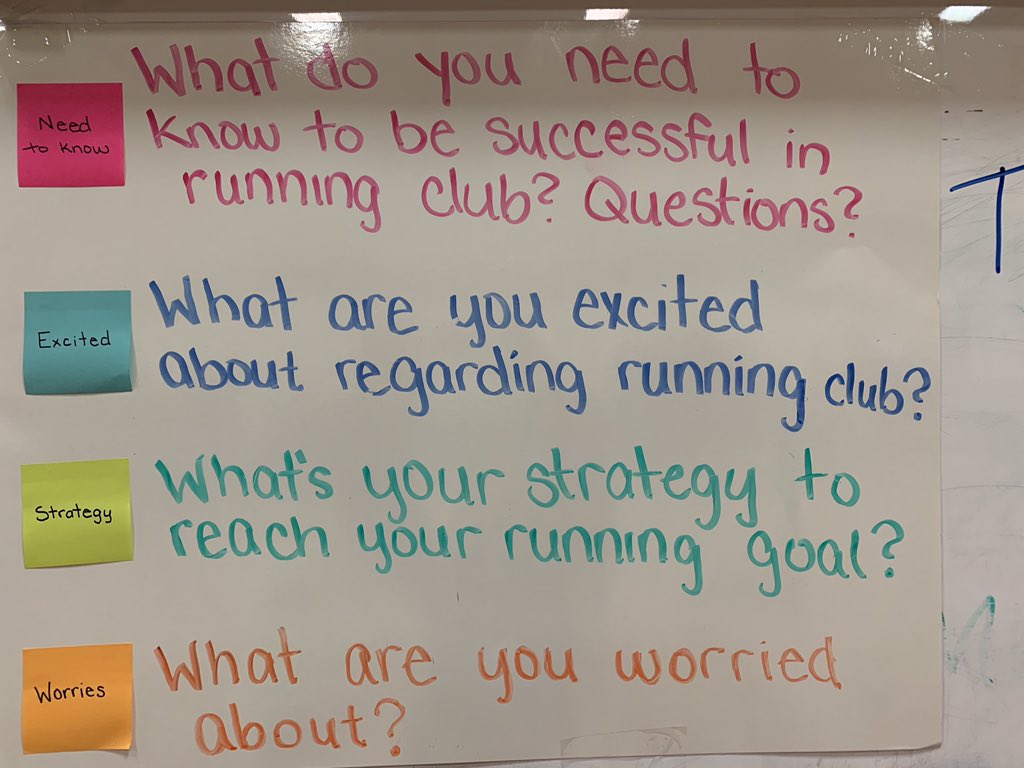 What do you need to
Need
to know
know to be successful in
running club? Questions?
What are you excited
Excited
about regarding running club?
What's your strategy to
Strategy
reach your running goal?
What are you worried
Worries
about?
T